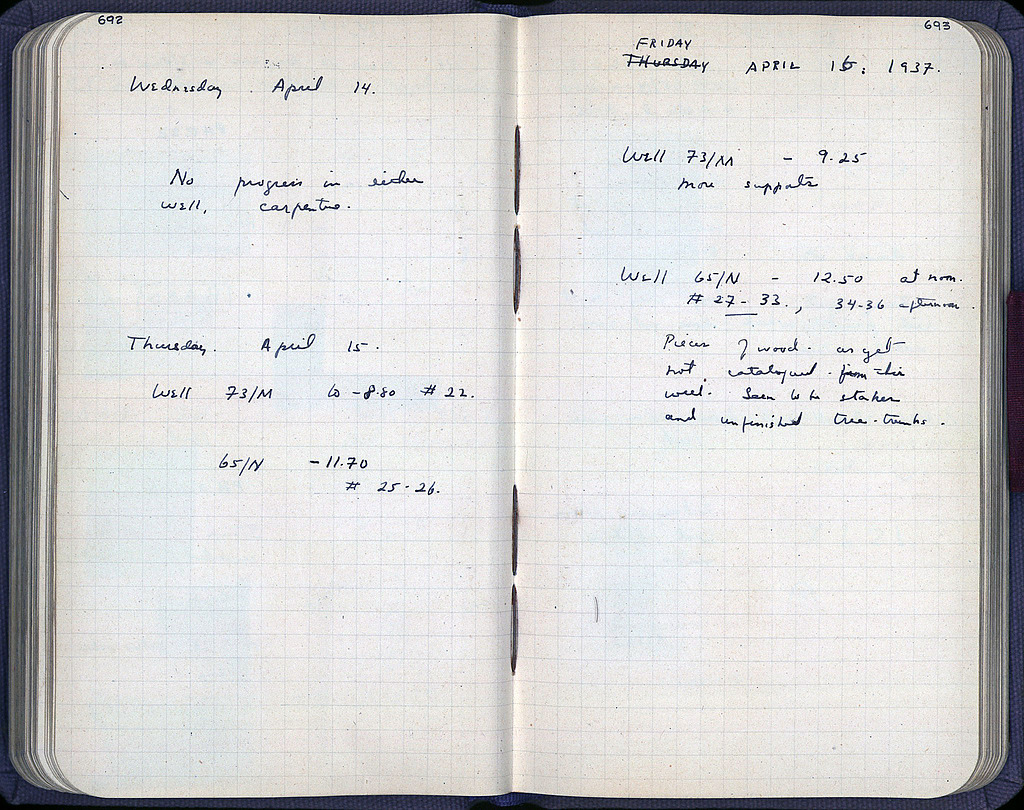 692
Wednesday April 14.
No progress in either
well, carpentro.
Thursday. April 15.
Well 73/M to -8.80 # 22.
65/N -11.70
# 25-26.
693
FRIDAY
THURSDAY APRIL 16: 1937.
Well 73/M - 9.25
more supports
Well 65/N - 12.50 at noon.
# 27-33., 34-36 afternoon.
Pieces of wood. as yet
not catalogued from this
well. Seem to be stakes
and unfinished tree-trunks.